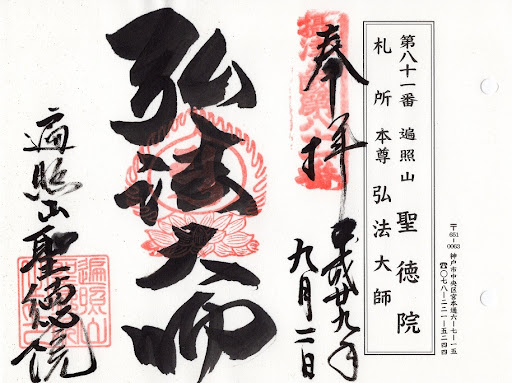 第八十一番 遍照山 聖徳院
札所本尊 弘法大師
〒651-0063 神戸市中央区宮本通六-七-一五
☎〇七八-二二一-五二四四
奉拝 平成廿九年
九月二日
弘法大師
遍照山聖徳院
遍照山